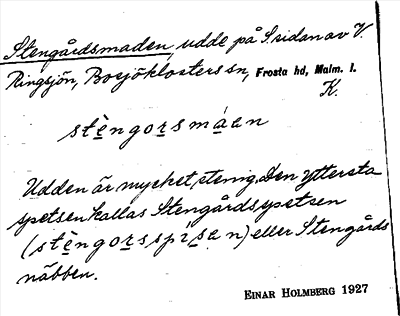 Stengårdsmaden, udde på S. sidan av V.
Ringsjön, Bosjöklosters sn, Frosta hd, Malm. l.
K.
stèngorsmáen
Udden är mycket stenig. Den yttersta
spetsen kallas Stengårdsspetsen
(stèngorsspisen) eller Stengårds
näbben.
EINAR HOLMBERG 1927